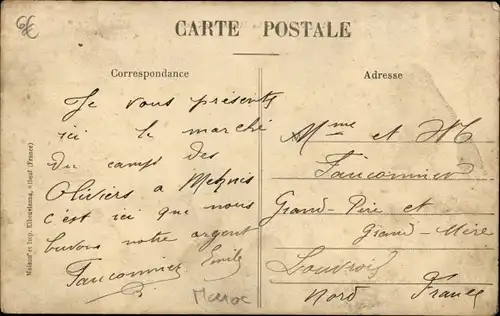 6€
CARTE POSTALE
Correspondance
Adresse
Je vous présente
ici le marché
du camps des
Oliviers a Meknis
c'est ici que nous
buvons notre argent
Fauconnier Emile
Maroc
Mme et M
Fauconnier
Grand-Père et
Grand-Mère
Louvroil
Nord France
(France)